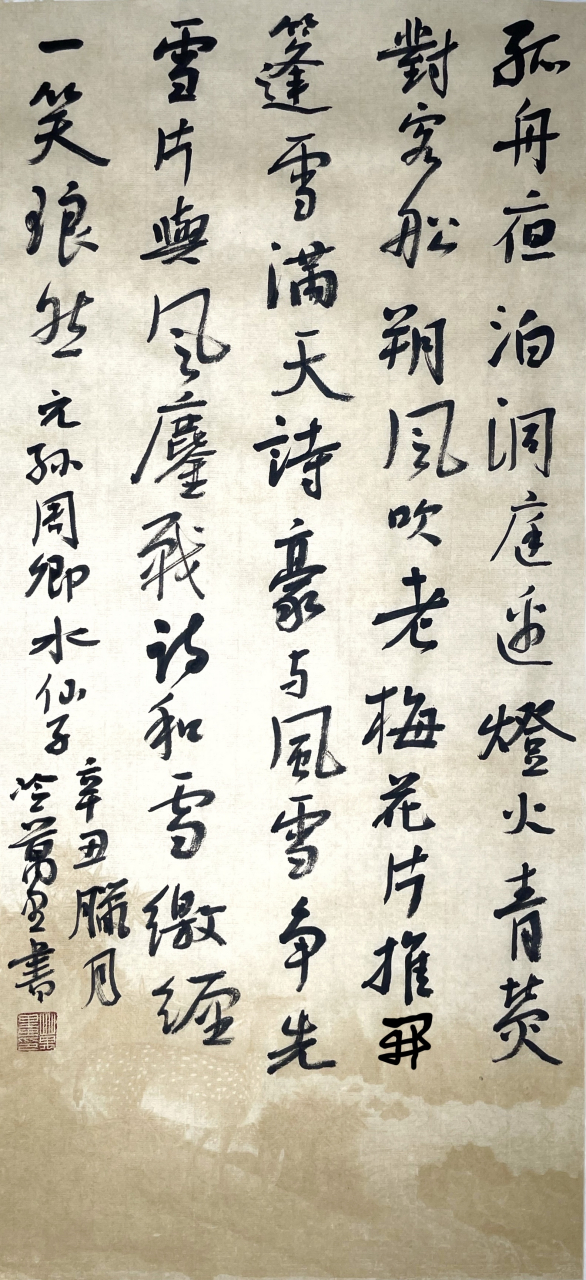 孤舟夜泊洞庭邊燈火青熒
對客船朔風吹老梅花片推開
篷雪滿天詩豪与風雪争先
雪片與風鏖戰詩和雪繳纏
一笑琅然元孫周卿水仙子
辛丑臘月
冷萬里書